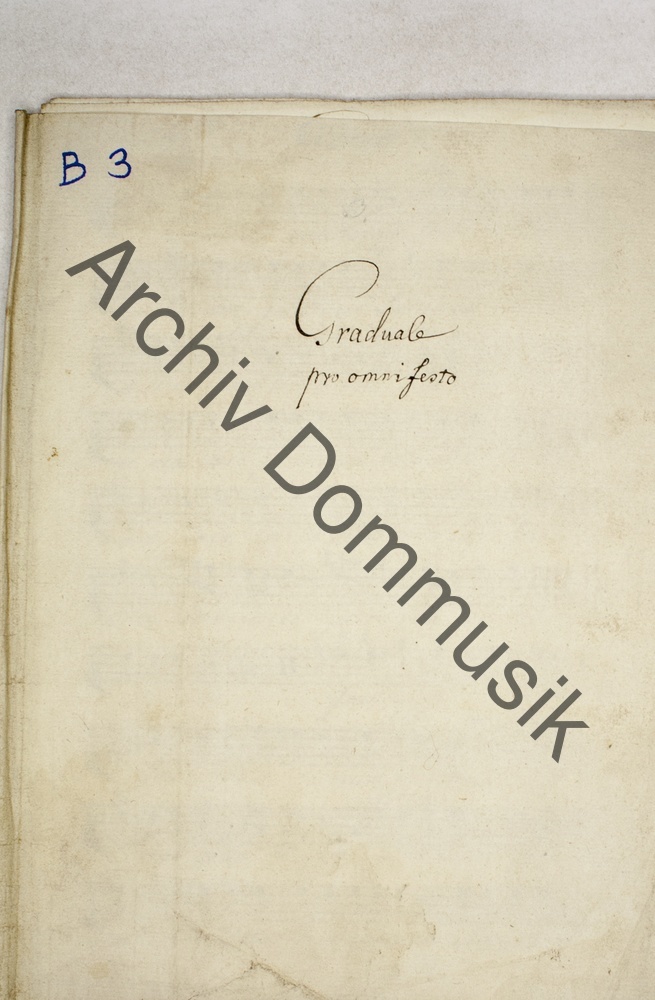 B 3
Graduale
pro omni festo
Archiv Dommusik